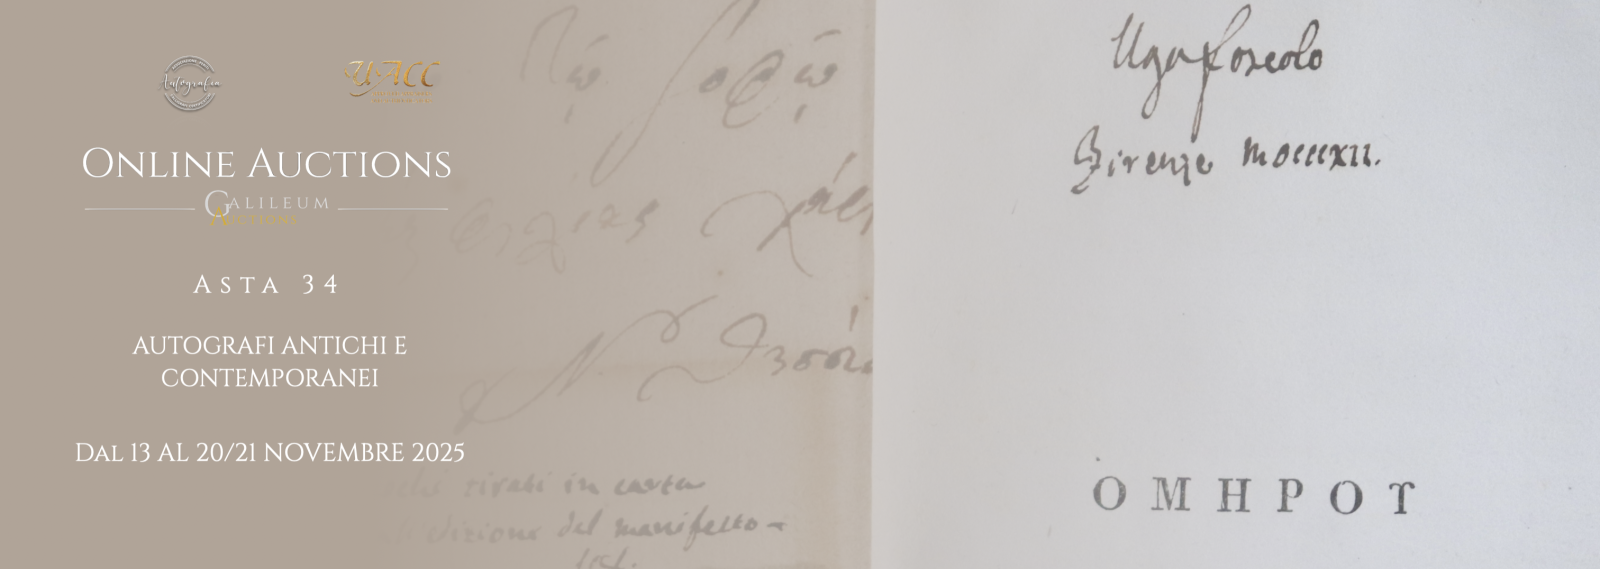 Autografia
UACC
Online Auctions
Galileum
Auctions
Asta 34
AUTOGRAFI ANTICHI E
CONTEMPORANEI
Dal 13 al 20/21 NOVEMBRE 2025
τῷ σοφῷ
φιλίας
tirati in carta
edizione del manifesto-
Ugo Foscolo
Firenze MDCCCXII.
ΟΜΗΡΟΥ